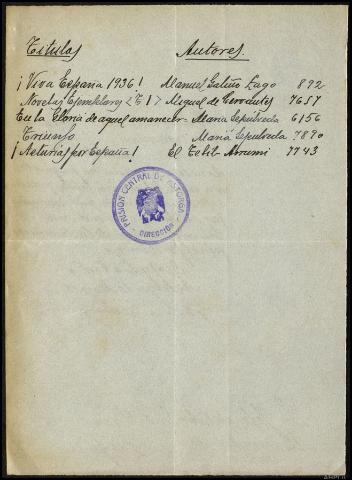 Titulos Autores
¡ Viva España 1936 ! Manuel Galiño Lago 892
Novelas Ejemplares (T I) Miguel de Cervantes 7657
En la Gloria de aquel amanecer - Maria Sepulveda 6156
Triunfo Maria Sepulveda 7890
¡ Asturias por España ! El Tebib Arrumi 7743
PRISION CENTRAL DE ASTORGA
DIRECCIÓN